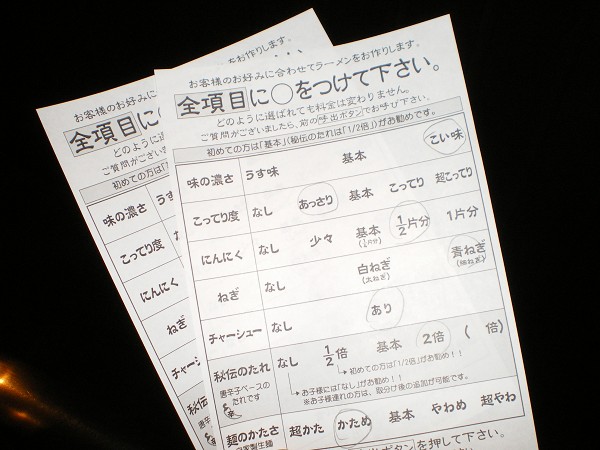 お客様のお好みに合わせてラーメンをお作りします。
全項目に○をつけて下さい。
どのように選ばれても料金は変わりません。
ご質問がございましたら、前の呼出ボタンでお呼び下さい。
初めての方は「基本」(秘伝のたれは「1/2倍」)がお勧めです。
味の濃さ うす味 基本 こい味
こってり度 なし あっさり 基本 こってり 超こってり
にんにく なし 少々 基本 1/2片分 1片分
ねぎ なし 白ねぎ 青ねぎ
(太ねぎ)
チャーシュー なし あり
秘伝のたれ なし 1/2倍 基本 2倍 ( 倍)
初めての方は「1/2倍」がお勧め!!
唐辛子ベースの
たれです
お子様には「なし」がお勧め!!
※お子様連れの方は、取分け後の追加が可能です。
麺のかたさ 超かた かため 基本 やわめ 超やわ
ボタンを押して下さい。
お客様のお好みに合わ
をお作りします。
全項目に
どのように
ご質問がござい
初めての方は「
味の濃さ うす
こってり度 な
にんにく
ねぎ
チャーシ
秘伝
唐辛子
たれ
麺の